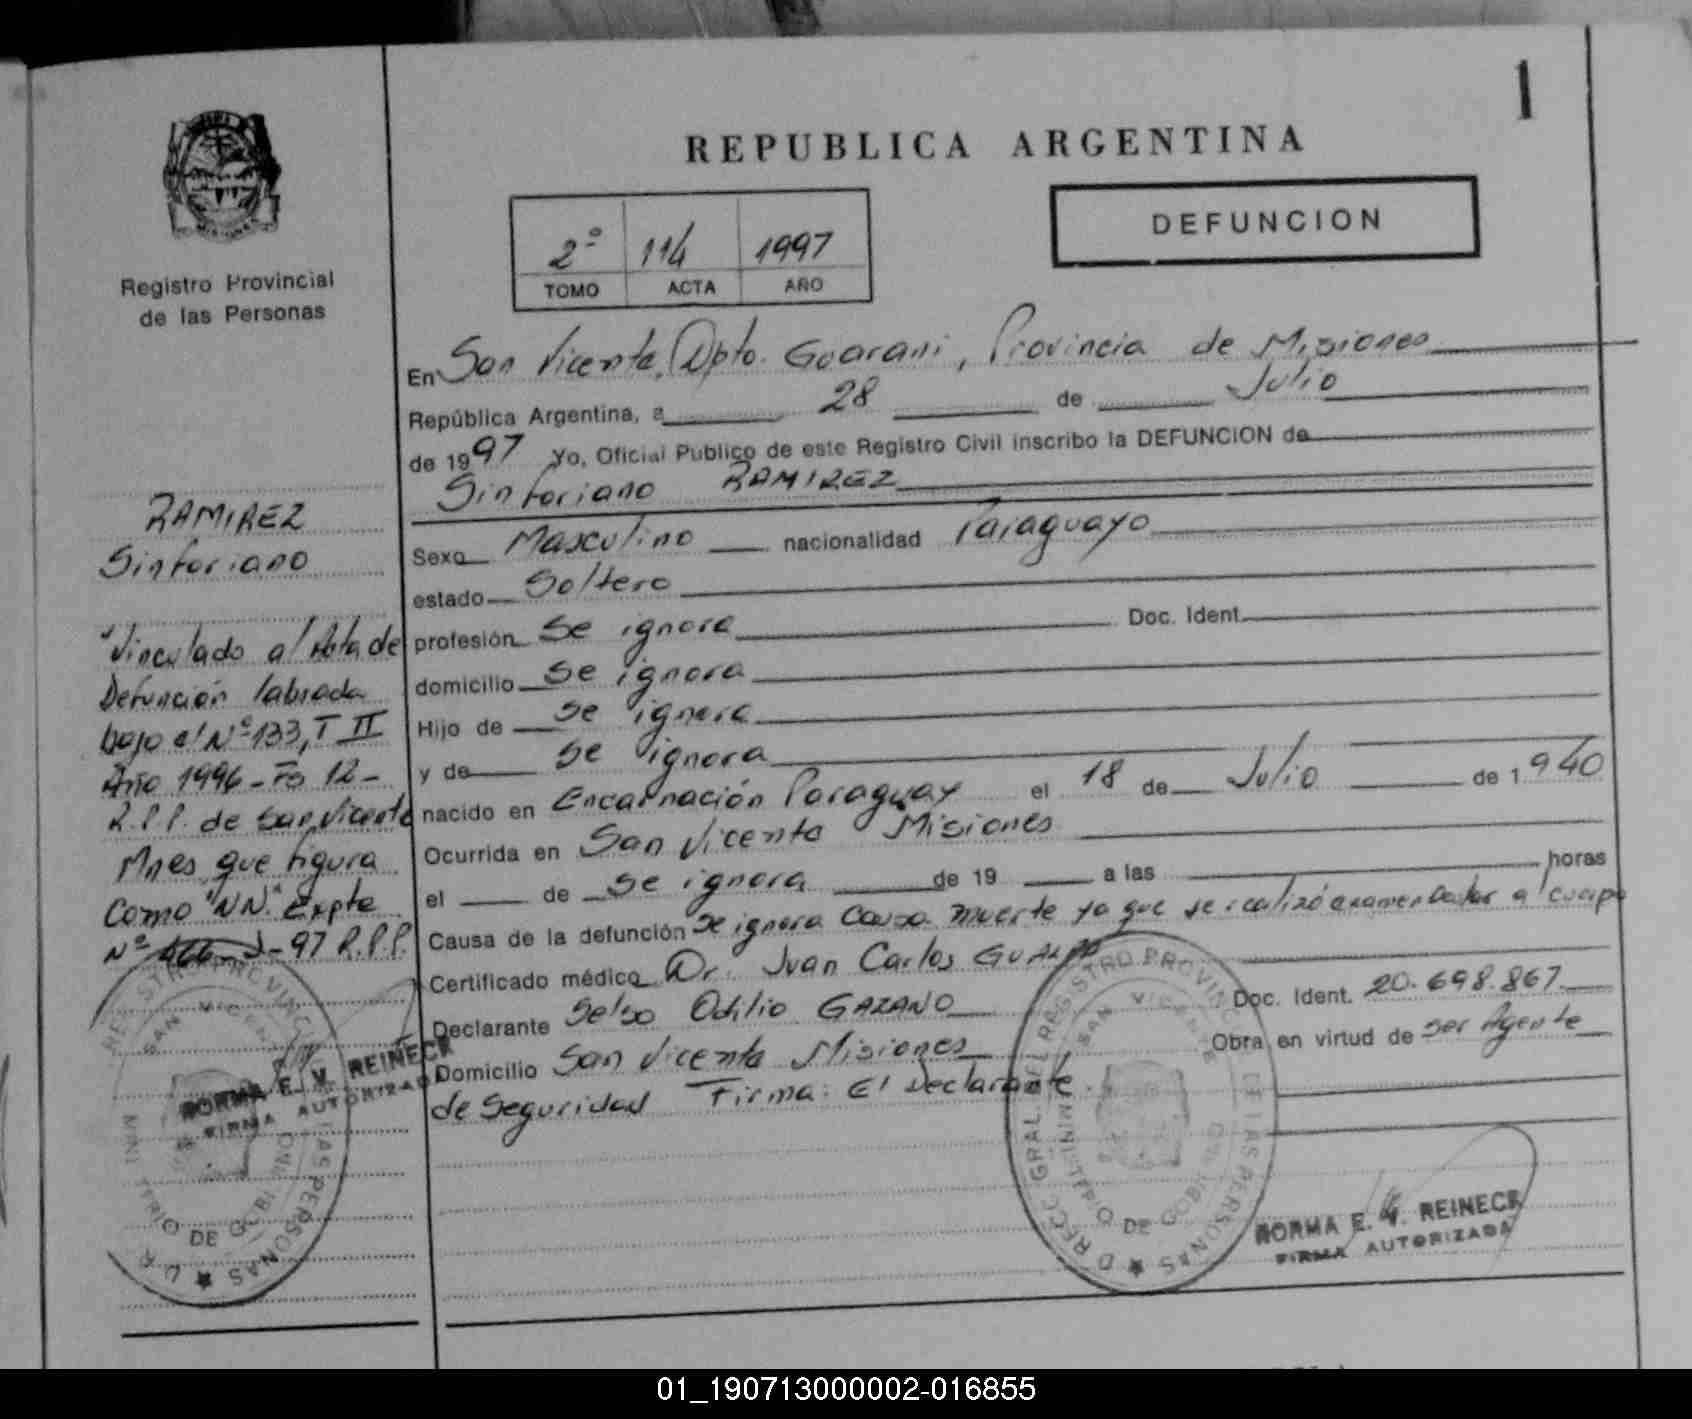 1
REPUBLICA ARGENTINA
DEFUNCION
2º 114 1997
TOMO ACTA AÑO
Registro Provincial
de las Personas
RAMIREZ
Sinforiano
"Vinculado al Acta de
Defunción labrada
bajo el Nº 133, T II
Año 1996 - Fs 12 -
R.P.P. de San Vicente
Mnes que figura
Como "NN" Expte
Nº 97 R.P.P.
En San Vicente, Dpto. Guarani, Provincia de Misiones
República Argentina, a 28 de Julio
de 1997 Yo, Oficial Publico de este Registro Civil inscribo la DEFUNCION de
Sinforiano RAMIREZ
Sexo Masculino nacionalidad Paraguayo
estado Soltero
profesión Se ignora Doc. Ident.
domicilio Se ignora
Hijo de Se ignora
y de Se ignora
nacido en Encarnación Paraguay el 18 de Julio de 1.940
Ocurrida en San Vicente Misiones
el de Se ignora de 19 a las horas
Causa de la defunción Se ignora Causa muerte ya que se realizó a cuerpo
Certificado médico Dr. Juan Carlos
Declarante Selso Odilio GAZANO Doc. Ident. 20.698.867
Domicilio San Vicente Misiones Obra en virtud de ser Agente
de Seguridad Firma: El Declarante.
SAN VICENTE
MINISTERIO DE GOBIERNO
NORMA E. V. REINECK
FIRMA AUTORIZADA
DIRECC GRAL. DEL REGISTRO PROVINCIAL DE LAS PERSONAS
SAN VICENTE
MINISTERIO DE GOBIERNO
NORMA E. V. REINECK
FIRMA AUTORIZADA
01_190713000002-016855